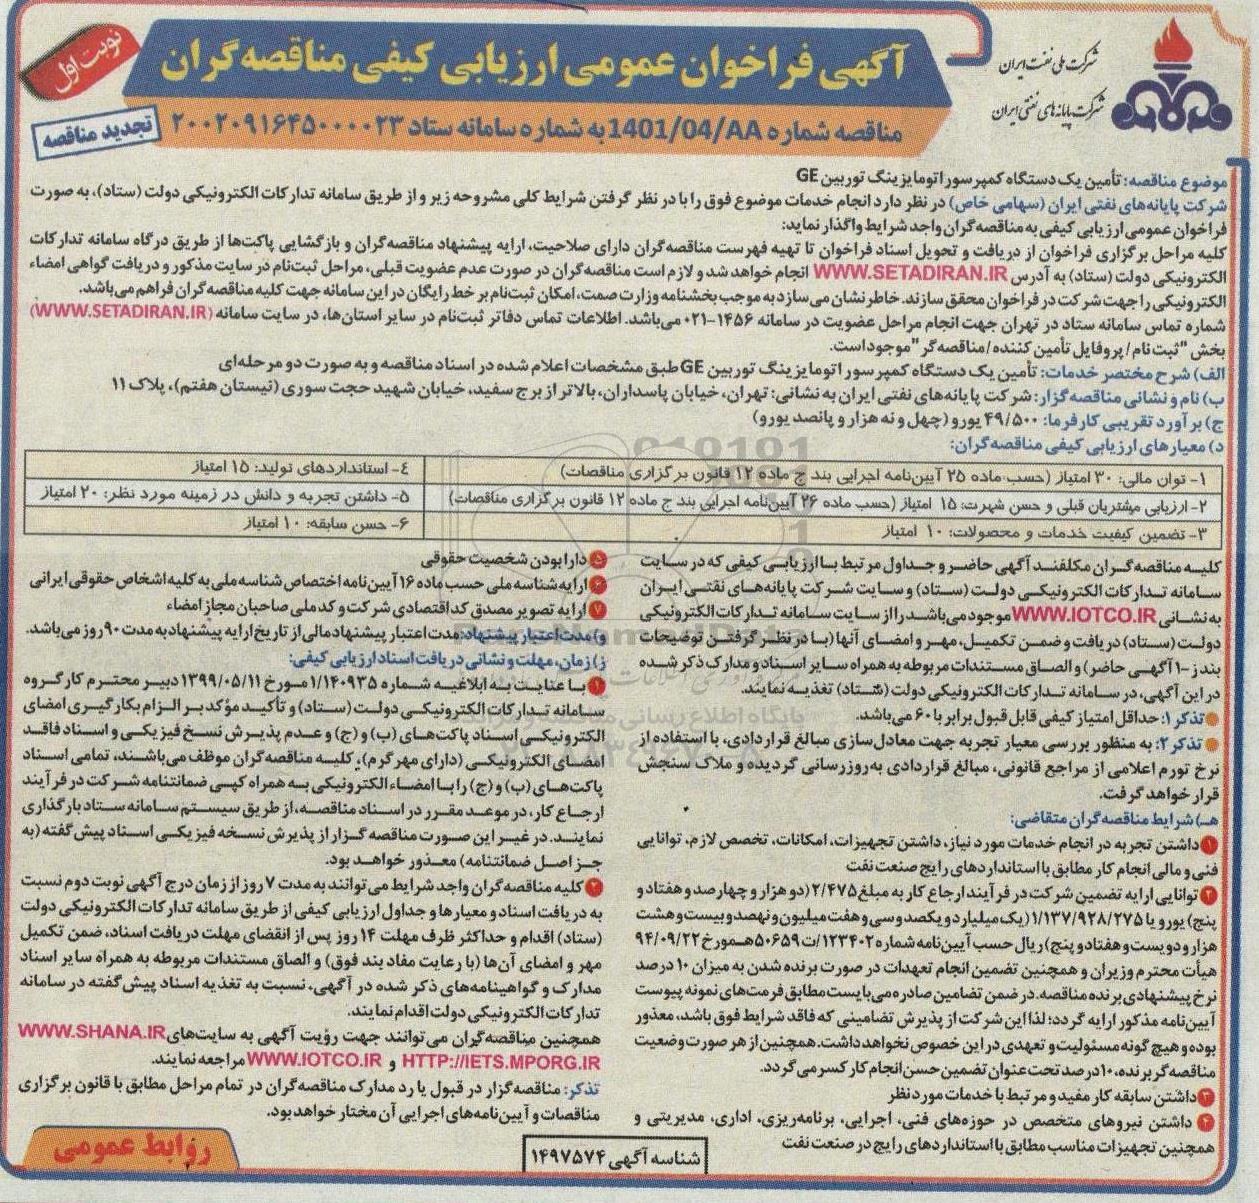 شرکت ملی نفت ایران
شرکت پایانه‌های نفتی ایران
نوبت اول
آگهی فراخوان عمومی ارزیابی کیفی مناقصه‌گران
مناقصه شماره 1401/04/AA به شماره سامانه ستاد ۲۰۰۲۰۹۱۶۴۵۰۰۰۰۲۳
تجدید مناقصه
موضوع مناقصه: تأمین یک دستگاه کمپرسور اتومایزینگ توربین GE
شرکت پایانه‌های نفتی ایران (سهامی خاص) در نظر دارد انجام خدمات موضوع فوق را با در نظر گرفتن شرایط کلی مشروحه زیر و از طریق سامانه تدارکات الکترونیکی دولت (ستاد)، به صورت
فراخوان عمومی ارزیابی کیفی به مناقصه‌گران واجد شرایط واگذار نماید:
کلیه مراحل برگزاری فراخوان از دریافت و تحویل اسناد فراخوان تا تهیه فهرست مناقصه‌گران دارای صلاحیت، ارایه پیشنهاد مناقصه‌گران و بازگشایی پاکت‌ها از طریق درگاه سامانه تدارکات
الکترونیکی دولت (ستاد) به آدرس WWW.SETADIRAN.IR انجام خواهد شد و لازم است مناقصه‌گران در صورت عدم عضویت قبلی، مراحل ثبت‌نام در سایت مذکور و دریافت گواهی امضاء
الکترونیکی را جهت شرکت در فراخوان محقق سازند. خاطر نشان می‌سازد به موجب بخشنامه وزارت صمت، امکان ثبت‌نام بر خط رایگان در این سامانه جهت کلیه مناقصه‌گران فراهم می‌باشد.
شماره تماس سامانه ستاد در تهران جهت انجام مراحل عضویت در سامانه ۱۴۵۶-۰۲۱ می‌باشد. اطلاعات تماس دفاتر ثبت‌نام در سایر استان‌ها، در سایت سامانه (WWW.SETADIRAN.IR)
بخش "ثبت نام/ پروفایل تأمین کننده/مناقصه‌گر" موجود است.
الف) شرح مختصر خدمات: تأمین یک دستگاه کمپرسور اتومایزینگ توربین GE طبق مشخصات اعلام شده در اسناد مناقصه و به صورت دو مرحله‌ای
ب) نام و نشانی مناقصه‌گزار: شرکت پایانه‌های نفتی ایران به نشانی: تهران، خیابان پاسداران، بالاتر از برج سفید، خیابان شهید حجت سوری (نیستان هفتم)، پلاک ۱۱
ج) برآورد تقریبی کارفرما: ۴۹/۵۰۰ یورو (چهل و نه هزار و پانصد یورو)
د) معیارهای ارزیابی کیفی مناقصه‌گران:
۱- توان مالی: ۳۰ امتیاز (حسب ماده ۲۵ آیین‌نامه اجرایی بند ج ماده ۱۲ قانون برگزاری مناقصات)
۴- استانداردهای تولید: ۱۵ امتیاز
۲- ارزیابی مشتریان قبلی و حسن شهرت: ۱۵ امتیاز (حسب ماده ۲۶ آیین‌نامه اجرایی بند ج ماده ۱۲ قانون برگزاری مناقصات)
۵- داشتن تجربه و دانش در زمینه مورد نظر: ۲۰ امتیاز
۳- تضمین کیفیت خدمات و محصولات: ۱۰ امتیاز
۶- حسن سابقه: ۱۰ امتیاز
کلیه مناقصه‌گران مکلفند آگهی حاضر و جداول مرتبط با ارزیابی کیفی که در سایت
سامانه تدارکات الکترونیکی دولت (ستاد) و سایت شرکت پایانه‌های نفتی ایران
به نشانی WWW.IOTCO.IR موجود می‌باشد را از سایت سامانه تدارکات الکترونیکی
دولت (ستاد) دریافت و ضمن تکمیل، مهر و امضای آنها (با در نظر گرفتن توضیحات
بند ز-۱ آگهی حاضر) و الصاق مستندات مربوطه به همراه سایر اسناد و مدارک ذکر شده
در این آگهی، در سامانه تدارکات الکترونیکی دولت (ستاد) تغذیه نمایند.
تذکر ۱: حداقل امتیاز کیفی قابل قبول برابر با ۶۰ می‌باشد.
تذکر ۲: به منظور بررسی معیار تجربه جهت معادل‌سازی مبالغ قراردادی، با استفاده از
نرخ تورم اعلامی از مراجع قانونی، مبالغ قراردادی به‌روزرسانی گردیده و ملاک سنجش
قرار خواهد گرفت.
هـ) شرایط مناقصه‌گران متقاضی:
۱ داشتن تجربه در انجام خدمات مورد نیاز، داشتن تجهیزات، امکانات، تخصص لازم، توانایی
فنی و مالی انجام کار مطابق با استانداردهای رایج صنعت نفت
۲ توانایی ارایه تضمین شرکت در فرآیند ارجاع کار به مبلغ ۲/۴۷۵ (دو هزار و چهارصد و هفتاد و
پنج) یورو یا ۱/۱۳۷/۹۲۸/۲۷۵ (یک میلیارد و یکصد و سی و هفت میلیون و نهصد و بیست و هشت
هزار و دویست و هفتاد و پنج) ریال حسب آیین‌نامه شماره ۱۲۳۴۰۲/ت۵۰۶۵۹هـ مورخ ۹۴/۰۹/۲۲
هیأت محترم وزیران و همچنین تضمین انجام تعهدات در صورت برنده شدن به میزان ۱۰ درصد
نرخ پیشنهادی برنده مناقصه. در ضمن تضامین صادره می‌بایست مطابق فرمت‌های نمونه پیوست
آیین‌نامه مذکور ارایه گردد؛ لذا این شرکت از پذیرش تضامینی که فاقد شرایط فوق باشد، معذور
بوده و هیچ گونه مسئولیت و تعهدی در این خصوص نخواهد داشت. همچنین از هر صورت وضعیت
مناقصه‌گر برنده، ۱۰ درصد تحت عنوان تضمین حسن انجام کار کسر می‌گردد.
۳ داشتن سابقه کار مفید و مرتبط با خدمات مورد نظر
۴ داشتن نیروهای متخصص در حوزه‌های فنی، اجرایی، برنامه‌ریزی، اداری، مدیریتی و
همچنین تجهیزات مناسب مطابق با استانداردهای رایج در صنعت نفت
۵ دارا بودن شخصیت حقوقی
۶ ارایه شناسه ملی حسب ماده ۱۶ آیین‌نامه اختصاص شناسه ملی به کلیه اشخاص حقوقی ایرانی
۷ ارایه تصویر مصدق کد اقتصادی شرکت و کد ملی صاحبان مجاز امضاء
و) مدت اعتبار پیشنهاد: مدت اعتبار پیشنهاد مالی از تاریخ ارایه پیشنهاد به مدت ۹۰ روز می‌باشد.
ز) زمان، مهلت و نشانی دریافت اسناد ارزیابی کیفی:
۱ با عنایت به ابلاغیه شماره ۱/۱۴۰۹۳۵ مورخ ۱۳۹۹/۰۵/۱۱ دبیر محترم کارگروه
سامانه تدارکات الکترونیکی دولت (ستاد) و تأکید مؤکد بر الزام بکارگیری امضای
الکترونیکی اسناد پاکت‌های (ب) و (ج) و عدم پذیرش نسخ فیزیکی و اسناد فاقد
امضای الکترونیکی (دارای مهر گرم)، کلیه مناقصه‌گران موظف می‌باشند، تمامی اسناد
پاکت‌های (ب) و (ج) را با امضاء الکترونیکی به همراه کپی ضمانتنامه شرکت در فرآیند
ارجاع کار، در موعد مقرر در اسناد مناقصه، از طریق سیستم سامانه ستاد بارگذاری
نمایند. در غیر این صورت مناقصه گزار از پذیرش نسخه فیزیکی اسناد پیش گفته (به
جز اصل ضمانتنامه) معذور خواهد بود.
۲ کلیه مناقصه‌گران واجد شرایط می‌توانند به مدت ۷ روز از زمان درج آگهی نوبت دوم نسبت
به دریافت اسناد و معیارها و جداول ارزیابی کیفی از طریق سامانه تدارکات الکترونیکی دولت
(ستاد) اقدام و حداکثر ظرف مهلت ۱۴ روز پس از انقضای مهلت دریافت اسناد، ضمن تکمیل
مهر و امضای آن‌ها (با رعایت مفاد بند فوق) و الصاق مستندات مربوطه به همراه سایر اسناد
مدارک و گواهینامه‌های ذکر شده در آگهی، نسبت به تغذیه اسناد پیش گفته در سامانه
تدارکات الکترونیکی دولت اقدام نمایند.
همچنین مناقصه‌گران می‌توانند جهت رؤیت آگهی به سایت‌های WWW.SHANA.IR
HTTP://IETS.MPORG.IR و WWW.IOTCO.IR مراجعه نمایند.
تذکر: مناقصه‌گزار در قبول یا رد مدارک مناقصه‌گران در تمام مراحل مطابق با قانون برگزاری
مناقصات و آیین‌نامه‌های اجرایی آن مختار خواهد بود.
شناسه آگهی ۱۴۹۷۵۷۴
روابط عمومی